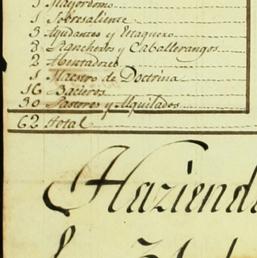 1 Mayordomo
1 Sobresaliente
3 Ayudantes y Estaquero
2 Rancheros y Caballerangos
2 Aventadores
1 Maestro de Doctrina
16 Bacieros
30 Pastores y Alquilados
62 Total
Haziend